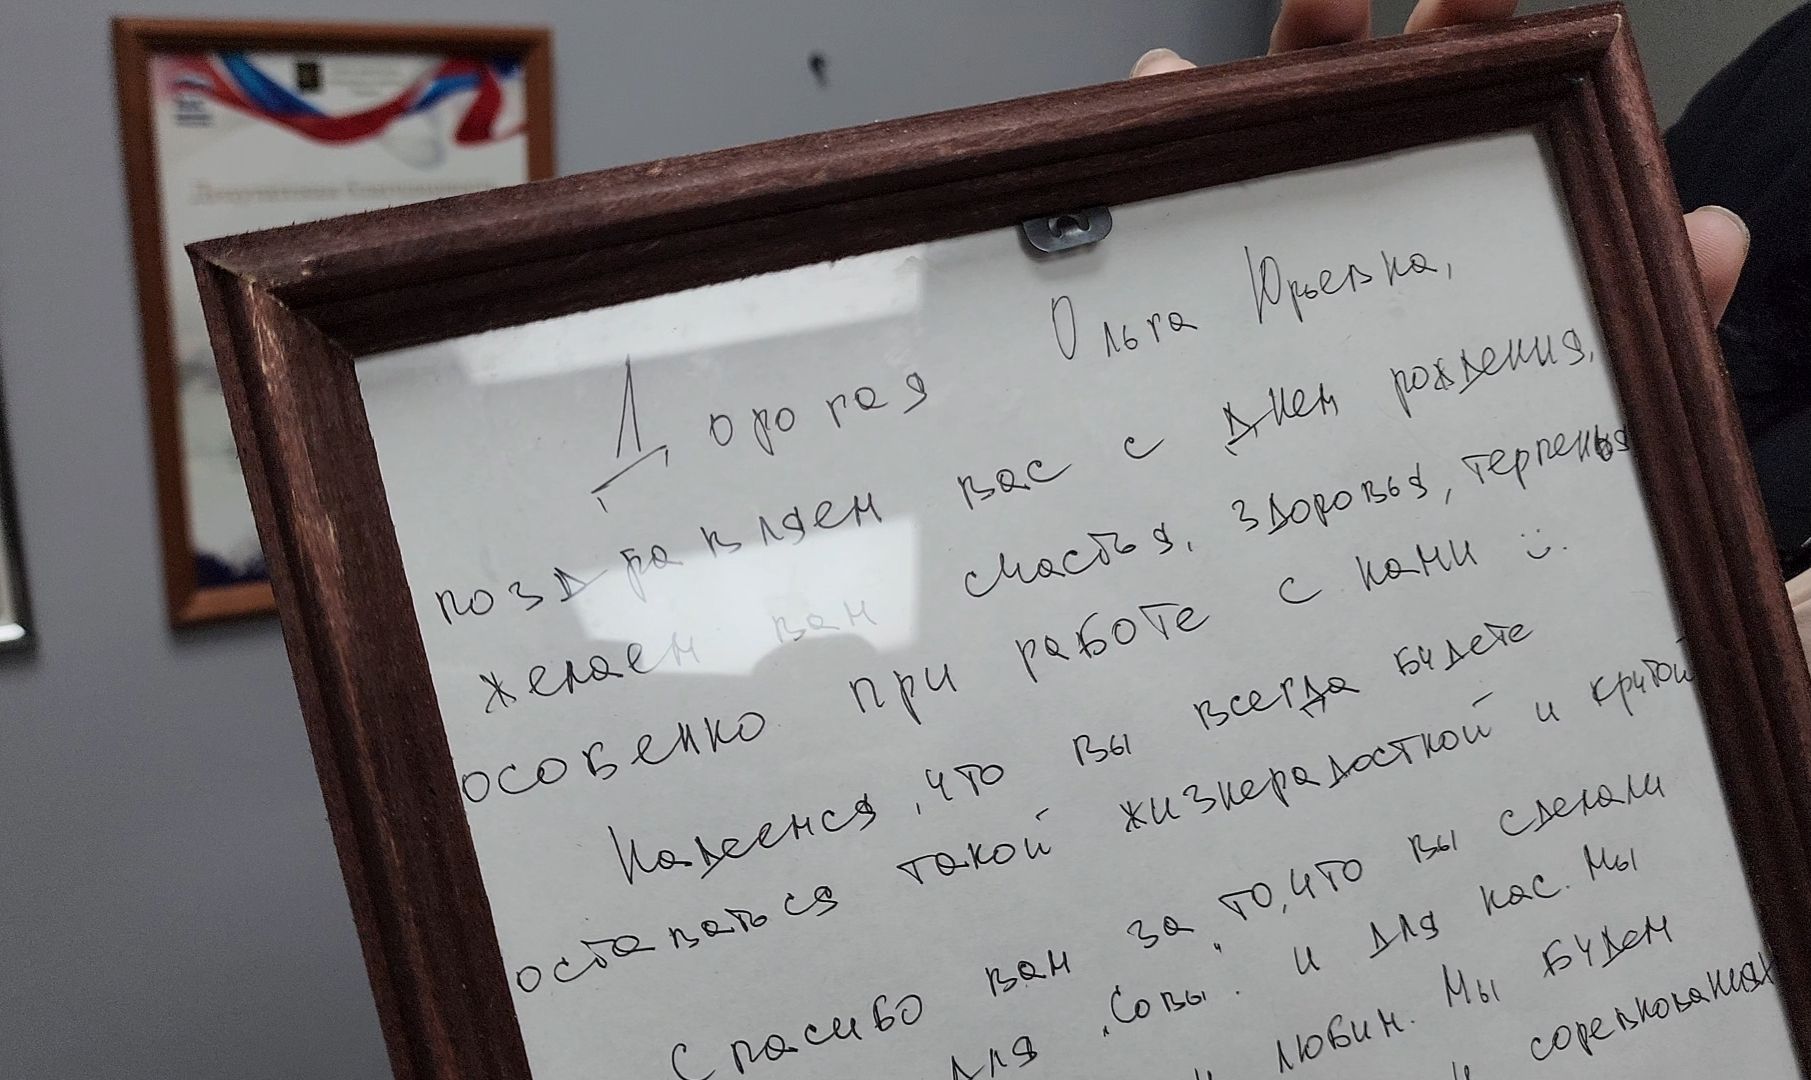 Дорогая Ольга Юрьевна,
поздравляем вас с днем рождения,
желаем вам счастья, здоровья, терпенья
особенно при работе с нами :).
Надеемся, что вы всегда будете
оставаться такой жизнерадостной и крутой
Спасибо вам за то, что вы сделали
для "Совы". и для нас. Мы
любим. Мы будем
соревнованиях